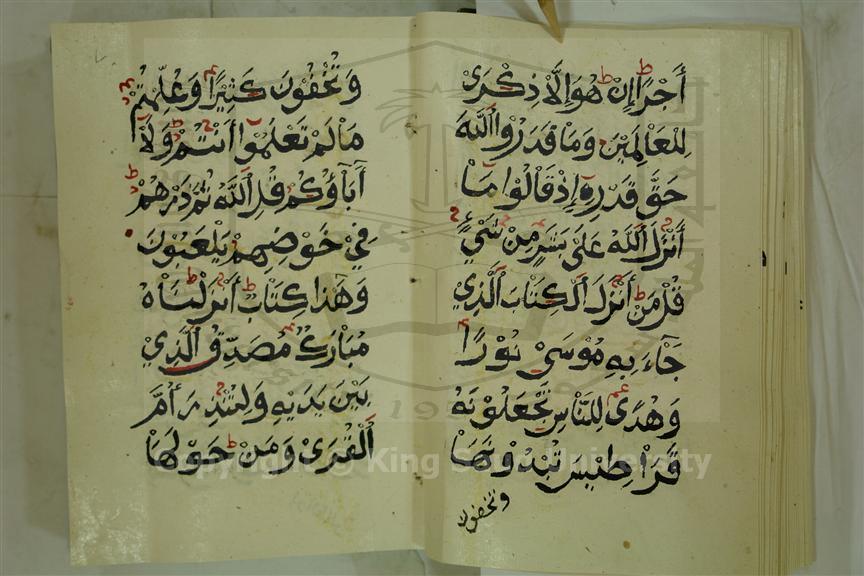 أَجْرًا إِنْ هُوَ إِلَّا ذِكْرَى
لِلْعَالَمِينَ وَمَا قَدَرُوا اللَّهَ
حَقَّ قَدْرِهِ إِذْ قَالُوا مَا
أَنْزَلَ اللَّهُ عَلَى بَشَرٍ مِنْ شَيْءٍ
قُلْ مَنْ أَنْزَلَ الْكِتَابَ الَّذِي
جَاءَ بِهِ مُوسَى نُورًا
وَهُدًى لِلنَّاسِ تَجْعَلُونَهُ
قَرَاطِيسَ تُبْدُونَهَا
وتخفون
وَتُخْفُونَ كَثِيرًا وَعُلِّمْتُمْ
مَا لَمْ تَعْلَمُوا أَنْتُمْ وَلَا
آبَاؤُكُمْ قُلِ اللَّهُ ثُمَّ ذَرْهُمْ
فِي خَوْضِهِمْ يَلْعَبُونَ
وَهَذَا كِتَابٌ أَنْزَلْنَاهُ
مُبَارَكٌ مُصَدِّقُ الَّذِي
بَيْنَ يَدَيْهِ وَلِتُنْذِرَ أُمَّ
الْقُرَى وَمَنْ حَوْلَهَا
Copyright © King Saud University